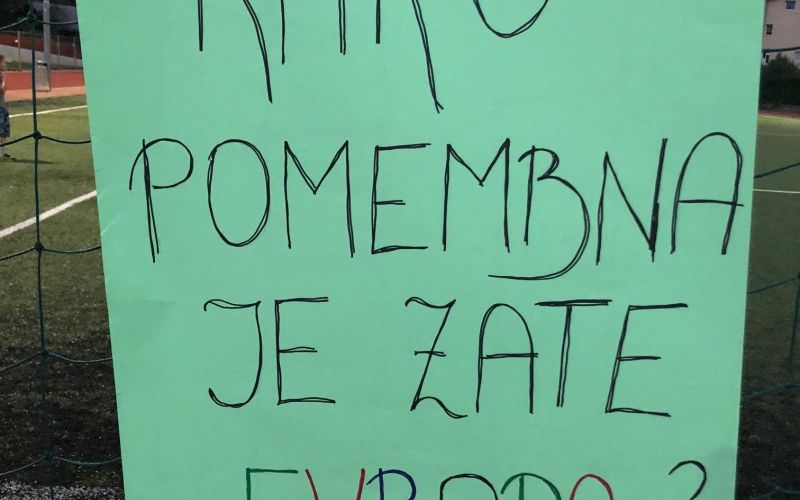 KAKO
POMEMBNA
JE ZATE
EVROPA?